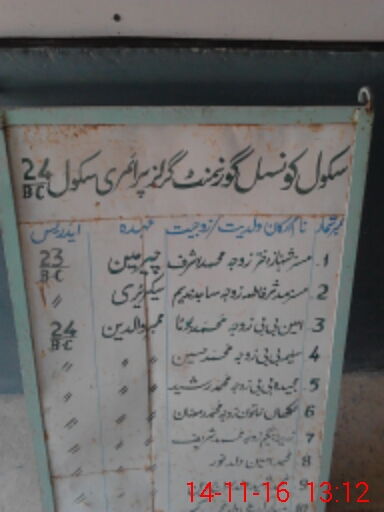 سکول کونسل گورنمنٹ گرلز پرائمری سکول 24/BC
نمبرشمار نام ارکان ولدیت/زوجیت عہدہ ایڈریس
1. مسز شہناز اختر زوجہ محمد اشرف چیرمین 23/BC
2. مسز مدثر فاطمہ زوجہ ساجد ندیم سیکریٹری 〃
3 امین بی بی زوجہ محمد ممبر والدین 24/BC
4 سلیم بی بی زوجہ محمد حسین 〃 〃 〃
5 مجیدہ بی بی زوجہ محمد رشید 〃 〃 〃
6 خاتون زوجہ محمد رمضان 〃 〃 〃
7 بیگم زوجہ محمد شریف 〃 〃 〃
8 محمد امین ولد نور 〃 〃 〃
9
10
14-11-16 13:12